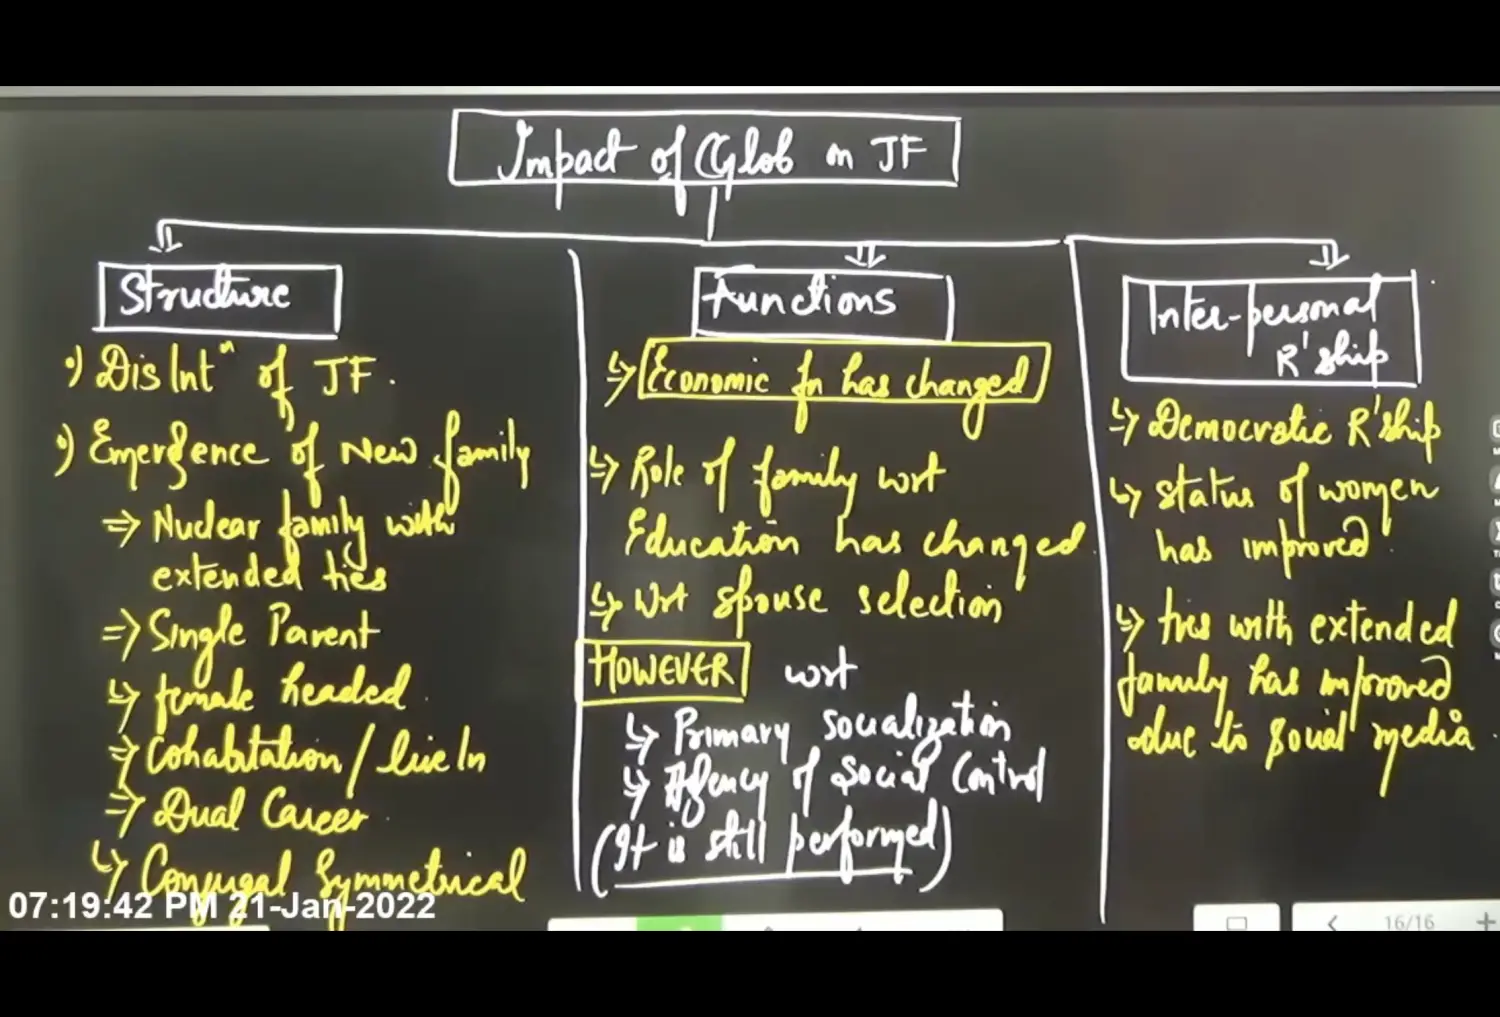 Impact of Glob on JF
Structure
•) DisIntⁿ of JF.
•) Emergence of New family
⇒ Nuclear family with
extended ties
⇒ Single Parent
↳ female headed
⇒ Cohabitation / live In
⇒ Dual Career
↳ Conjugal Symmetrical
Functions
↳ Economic fn has changed
↳ Role of family wrt
Education has changed
↳ Wrt spouse selection
HOWEVER wrt
↳ Primary socialization
↳ Agency of Social Control
(It is still performed)
Inter-personal
R'ship
↳ Democratic R'ship
↳ status of women
has improved
↳ ties with extended
family has improved
due to social media.
07:19:42 PM 21-Jan-2022
16/16